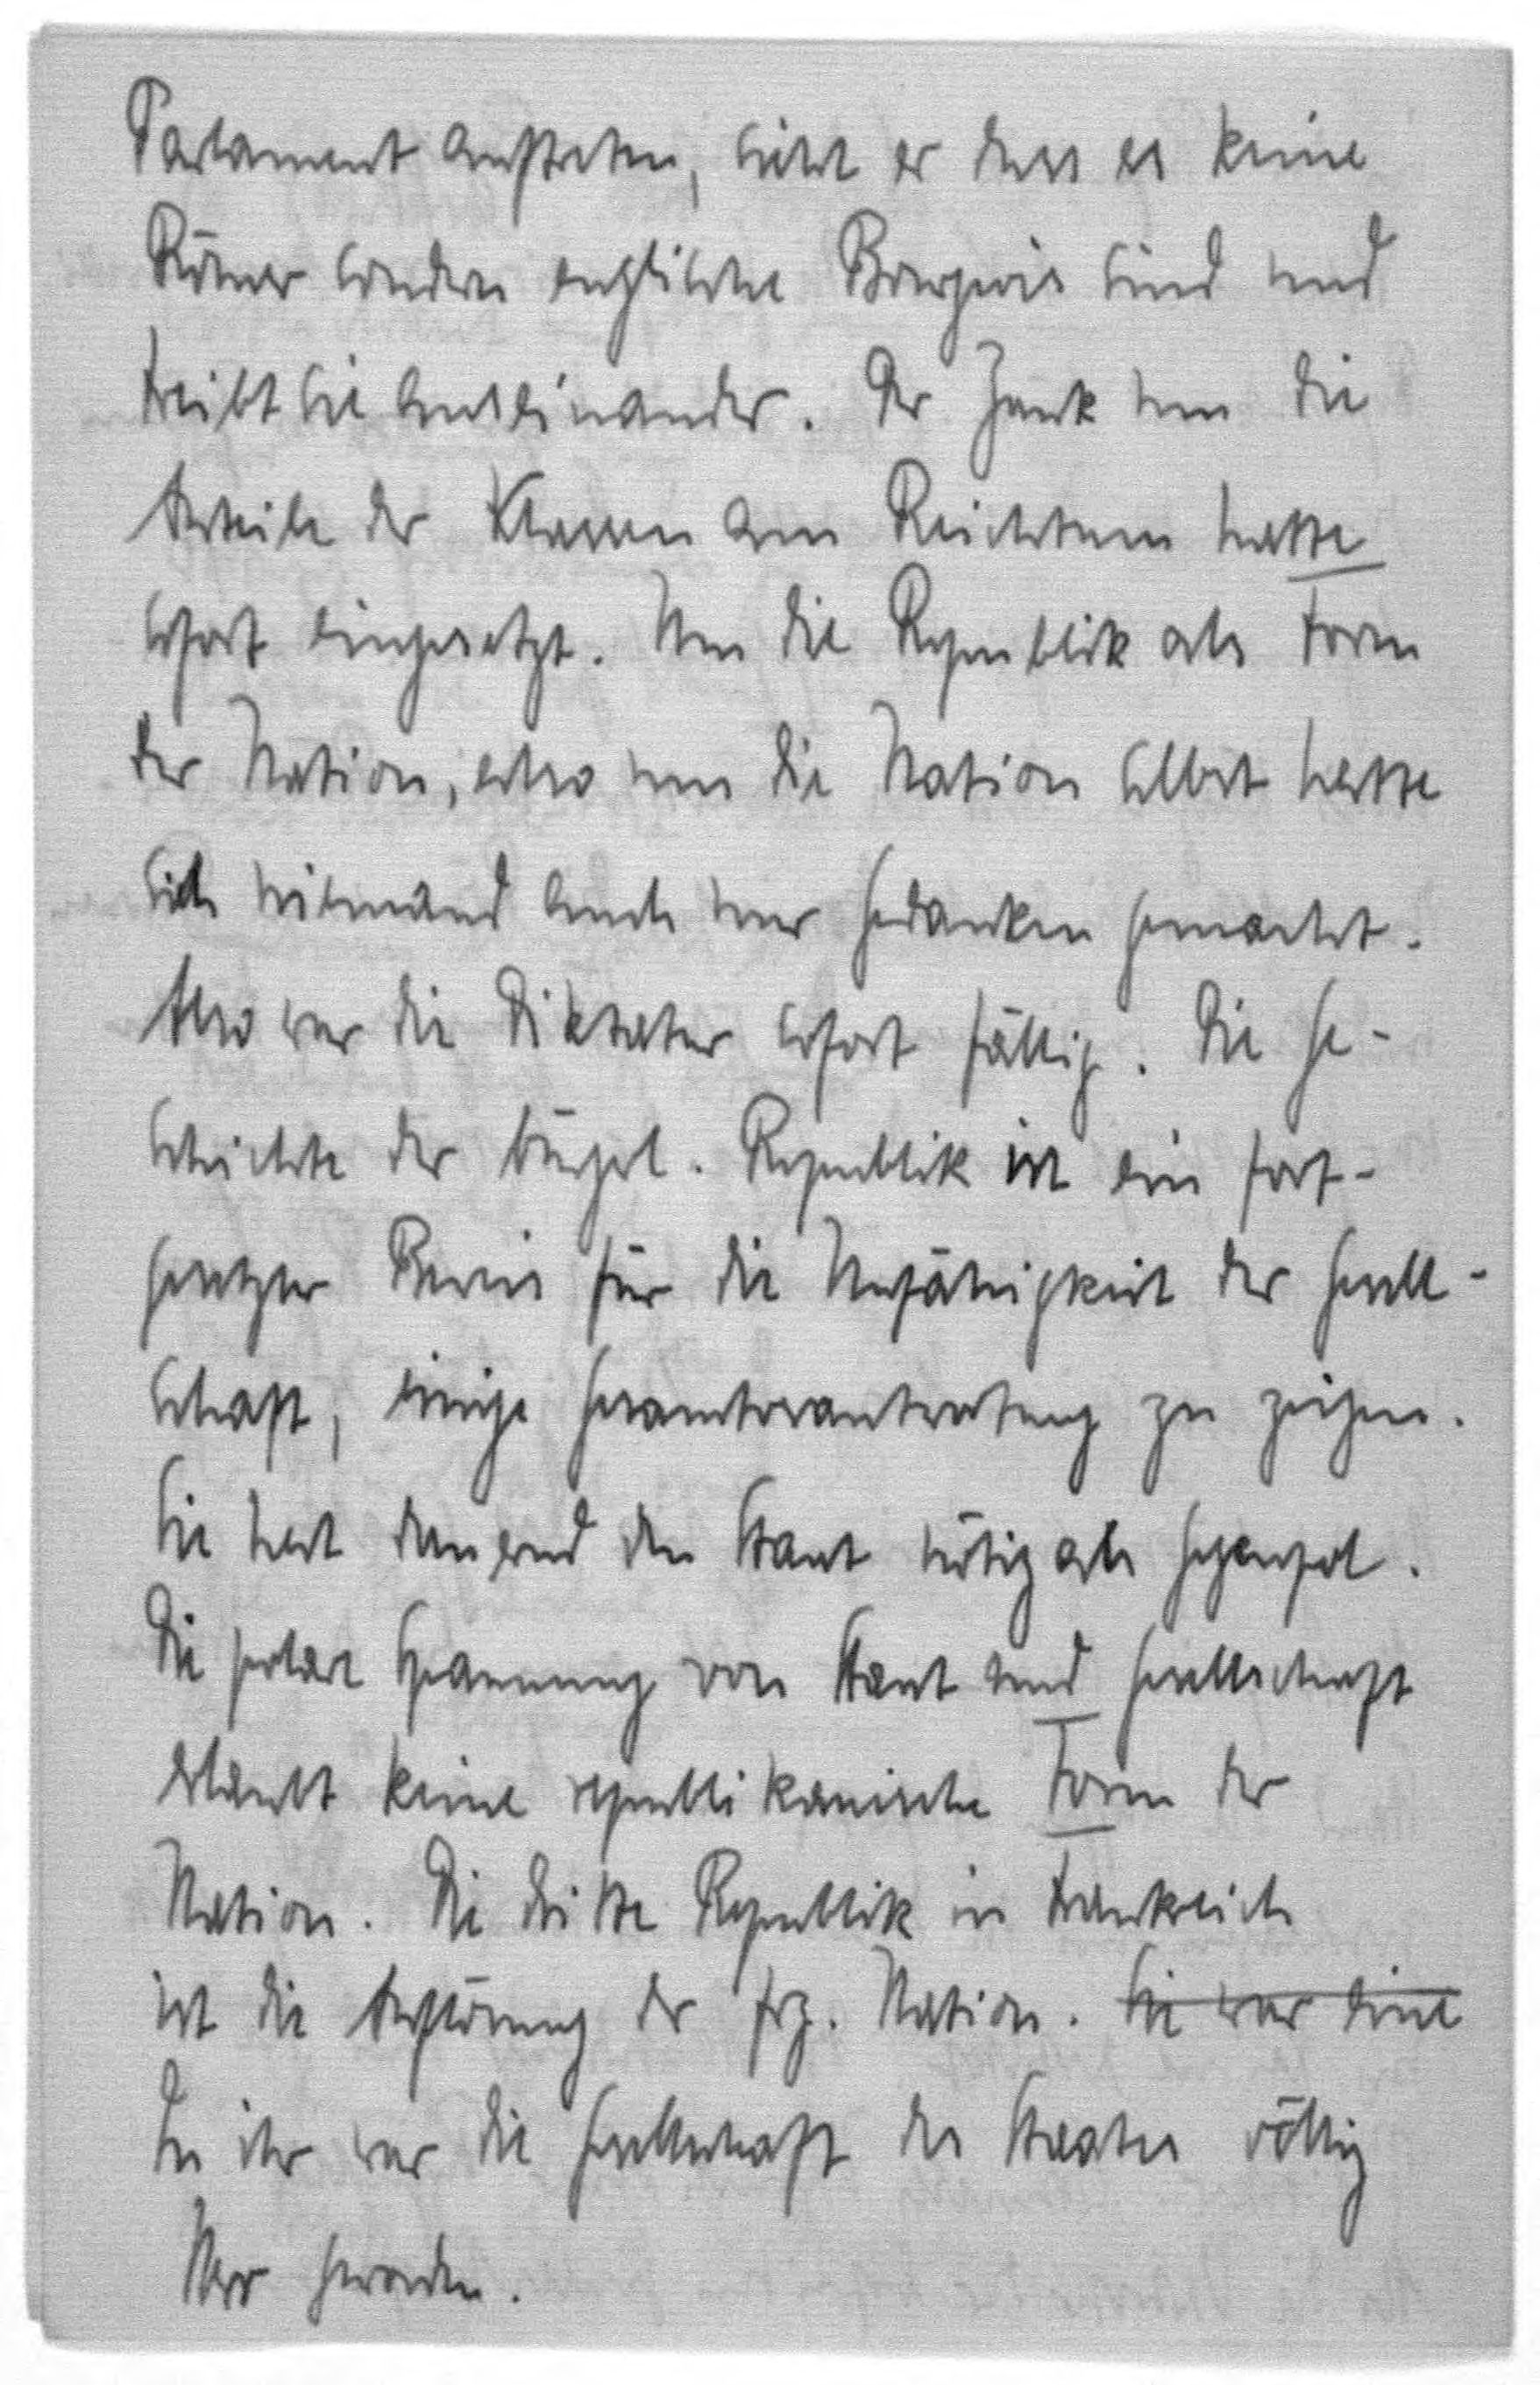 Parlament auftreten, sieht er dass es keine
Römer sondern englische Bourgeois sind und
treibt sie auseinander. Der Zank um die
Anteile der Klassen am Reichtum hatte
sofort eingesetzt. Um die Republik als Form
der Nation, also um die Nation selbst hatte
sich niemand auch nur Gedanken gemacht.
Also war die Diktatur sofort fällig. Die Ge-
schichte der bürgerl. Republik ist ein fort-
gesetzter Beweis für die Unfähigkeit der Gesell-
schaft, einige Gesamtverantwortung zu zeigen.
Sie hat dauernd den Staat nötig als Gegenpol.
Die polare Spannung von Staat und Gesellschaft
erlaubt keine republikanische Form der
Nation. Die dritte Republik in Frankreich
ist die Auflösung der frz. Nation. Sie war eine
In ihr war die Gesellschaft des Staates völlig
Herr geworden.